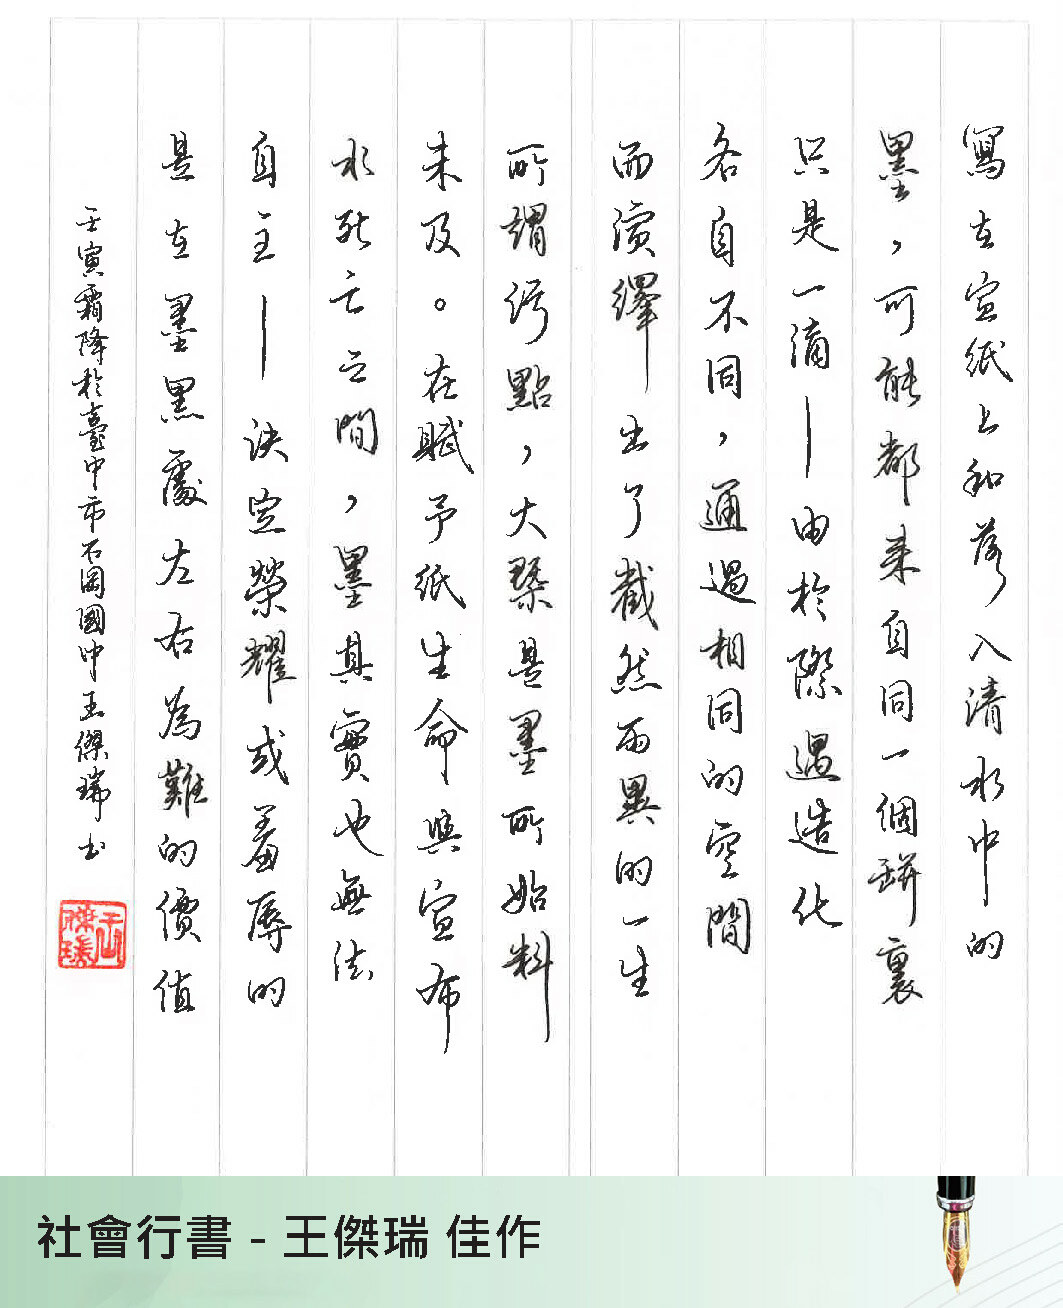 寫在宣紙上和落入清水中的
墨，可能都來自同一個瓶裏
只是一滴—由於際遇造化
各自不同，通過相同的空間
而演繹出了截然而異的一生
所謂污點，大概是墨所始料
未及。在賦予紙生命與宣布
水死亡之間，墨其實也無法
自主—決定榮耀或羞辱的
是在墨黑處左右為難的價值
壬寅霜降於臺中市石岡國中王傑瑞書
王傑瑞
社會行書 - 王傑瑞 佳作